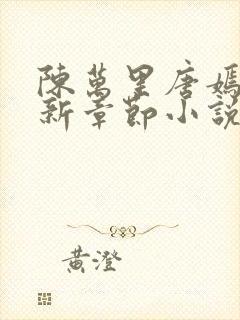 陳萬里唐嫣
新章節小說
黃澄